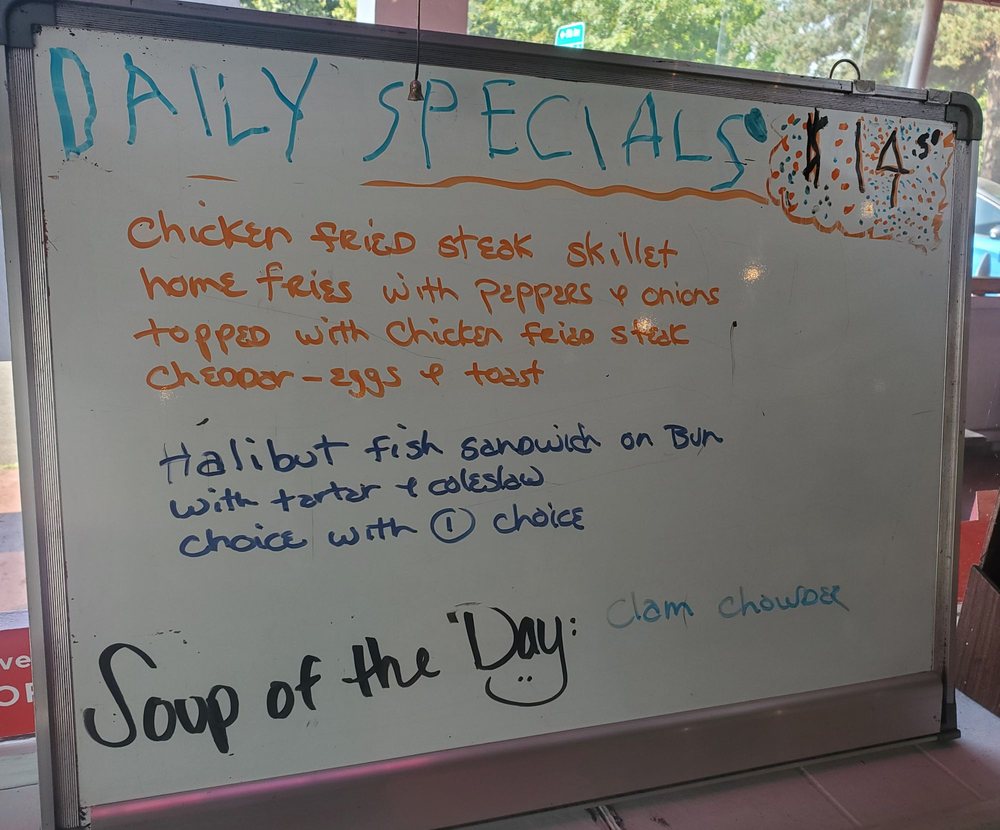 DAILY SPECIALS
$14
Chicken fried steak skillet
home fries with peppers & onions
topped with chicken fried steak
cheddar - eggs & toast
Halibut fish sandwich on Bun
with tartar & coleslaw
choice with 1 choice
Soup of the Day:
Clam chowder